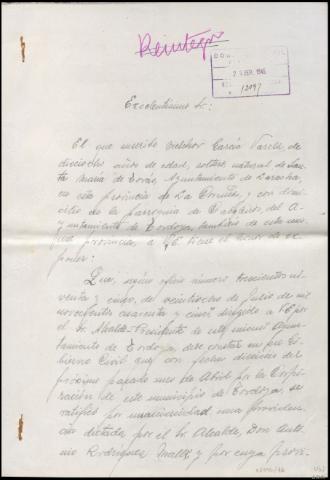 Reintegro
12097
Excelentísimo Sr:
El que suscribe Melchor García Varela, de
dieciocho años de edad, soltero, natural de San-
ta María de Ayuntamiento de Laracha,
en esta provincia de La Coruña, y con domi-
cilio en la parroquia de del A-
yuntamiento de Tordoya, también de esta mis-
ma provincia, a V.E. tiene el honor de ex-
poner:
Que, según oficio número trescientos no-
venta y cinco, del veintiocho de Julio de mil
novecientos cuarenta y cinco dirigido a V.E. por
el Sr. Alcalde-Presidente de este mismo Ayun-
tamiento de Tordoya, debe constar en ese Go-
bierno Civil que con fecha dieciseis del
próximo pasado mes de Abril por la Corpo-
ración de este municipio de Tordoya, se
ratificó por unanimidad una providen-
cia dictada por el Sr. Alcalde, Don Anto-
nio Rodríguez y por cuya provi-